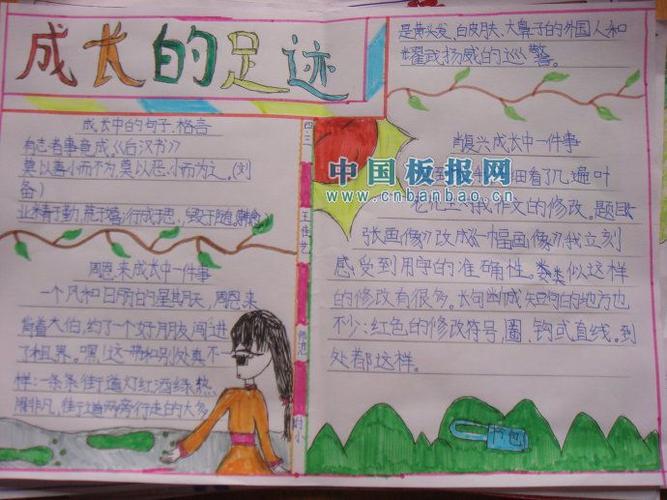 成长的足迹
成长中的句子、格言
有志者事竟成《后汉书》
莫以善小而不为,莫以恶小而为之。(刘
备)
业精于勤,荒于嬉;行成于思,毁于随。韩愈
周恩来成长中一件事
一个风和日丽的星期天,周恩来
背着大伯,约了一个好朋友闯进
了租界。嘿!这一带和别处真不一
样:一条条街道灯红酒绿,热
闹非凡,街道两旁行走的大多
四三
王佳艺
附小
是黄头发、白皮肤、大鼻子的外国人和
耀武扬威的巡警。
肖复兴成长中一件事
细看了几遍叶
老先生对我作文的修改。题目
张画像》改成《一幅画像》我立刻
感受到用字的准确性。类似这样
的修改有很多。长句断成短句的地方也
不少:红色的修改符号,圈、钩或直线。到
处都这样。
中国板报网
www.cnbanbao.cn